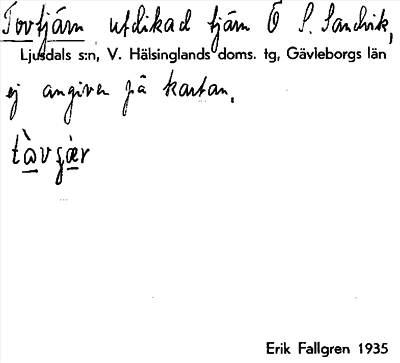 Tovtjärn utdikad tjärn Ö S. Sandvik,
Ljusdals s:n, V. Hälsinglands doms. tg, Gävleborgs län
ej angiven på kartan.
tàvʂæ̀r
Erik Fallgren 1935